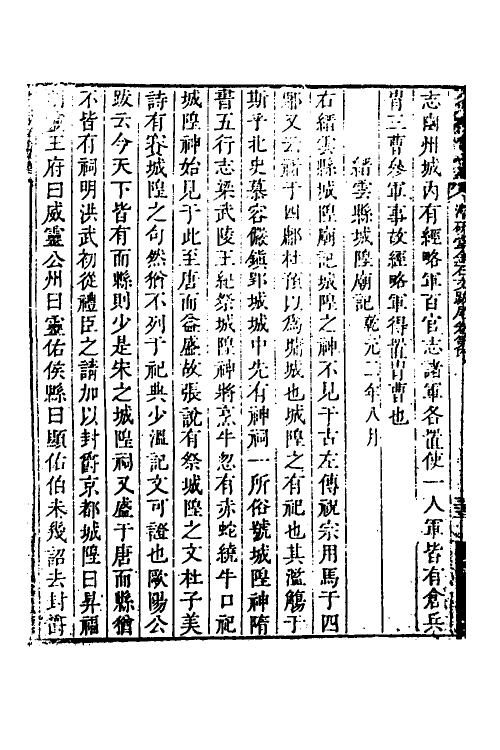 志幽州城内有經略軍百官志諸軍各置使一人軍皆有倉兵
冑三曹參軍事故經略軍得置冑曹也
縉雲縣城隍廟記乾元二年八月
右縉雲縣城隍廟記城隍之神不見于古左傳祝宗用馬于四
鄘又云祈于四鄘杜預以為墉城也城隍之有祀也其濫觴于
斯乎北史慕容儼鎮郢城城中先有神祠一所俗號城隍神隋
書五行志梁武陵王紀祭城隍神將烹牛忽有赤蛇繞牛口祀
城隍神始見于此至唐而益盛故張說有祭城隍之文杜子美
詩有賽城隍之句然猶不列于祀典少溫記文可證也歐陽公
跋云今天下皆有而縣則少是朱之城隍祠又盛于唐而縣猶
不皆有祠明洪武初從禮臣之請加以封爵京都城隍曰昇福
王府曰威靈公州曰靈佑侯縣曰顯佑伯未幾詔去封爵